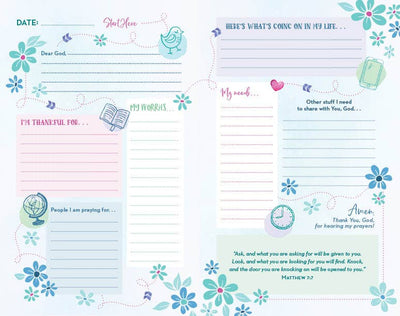 DATE:
Start Here
Dear God,
MY WORRIES...
I'M THANKFUL FOR...
People I am praying for...
HERE'S WHAT'S GOING ON IN MY LIFE...
My needs...
Other stuff I need
to share with You, God...
Amen,
Thank You, God,
for hearing my prayers!
"Ask, and what you are asking for will be given to you.
Look, and what you are looking for you will find. Knock,
and the door you are knocking on will be opened to you."
MATTHEW 7:7